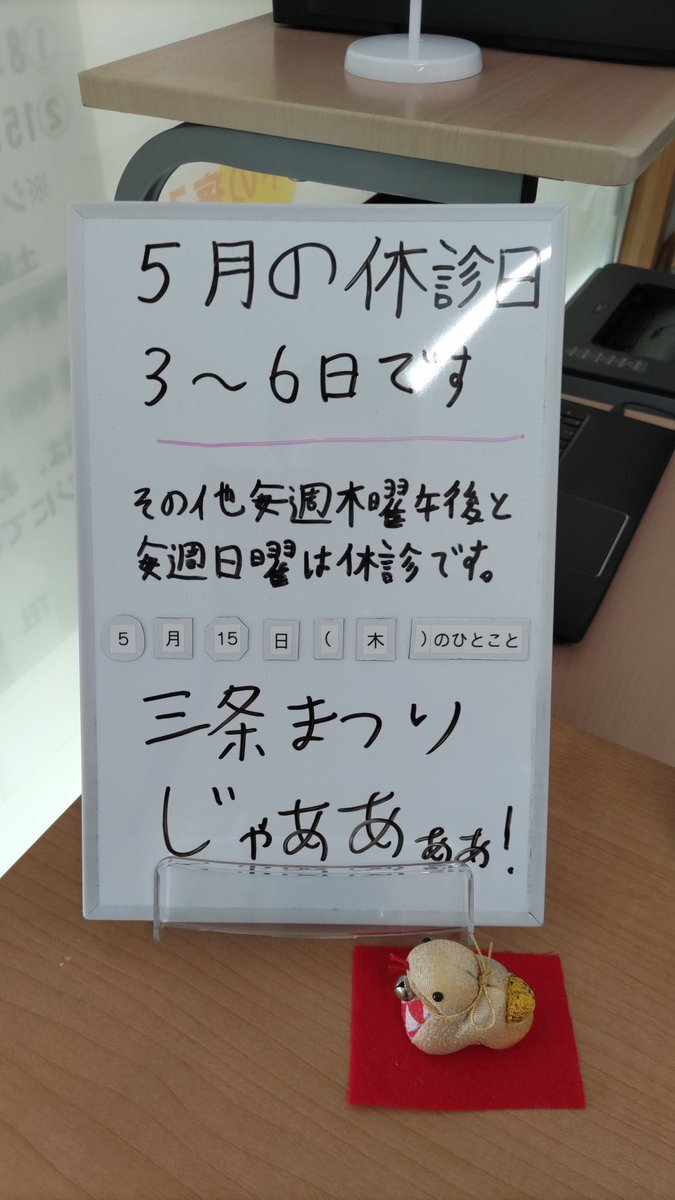 5月の休診日
3～6日です
その他毎週木曜午後と
毎週日曜は休診です。
5月15日(木)のひとこと
三条まつり
じゃあああぁぁ!